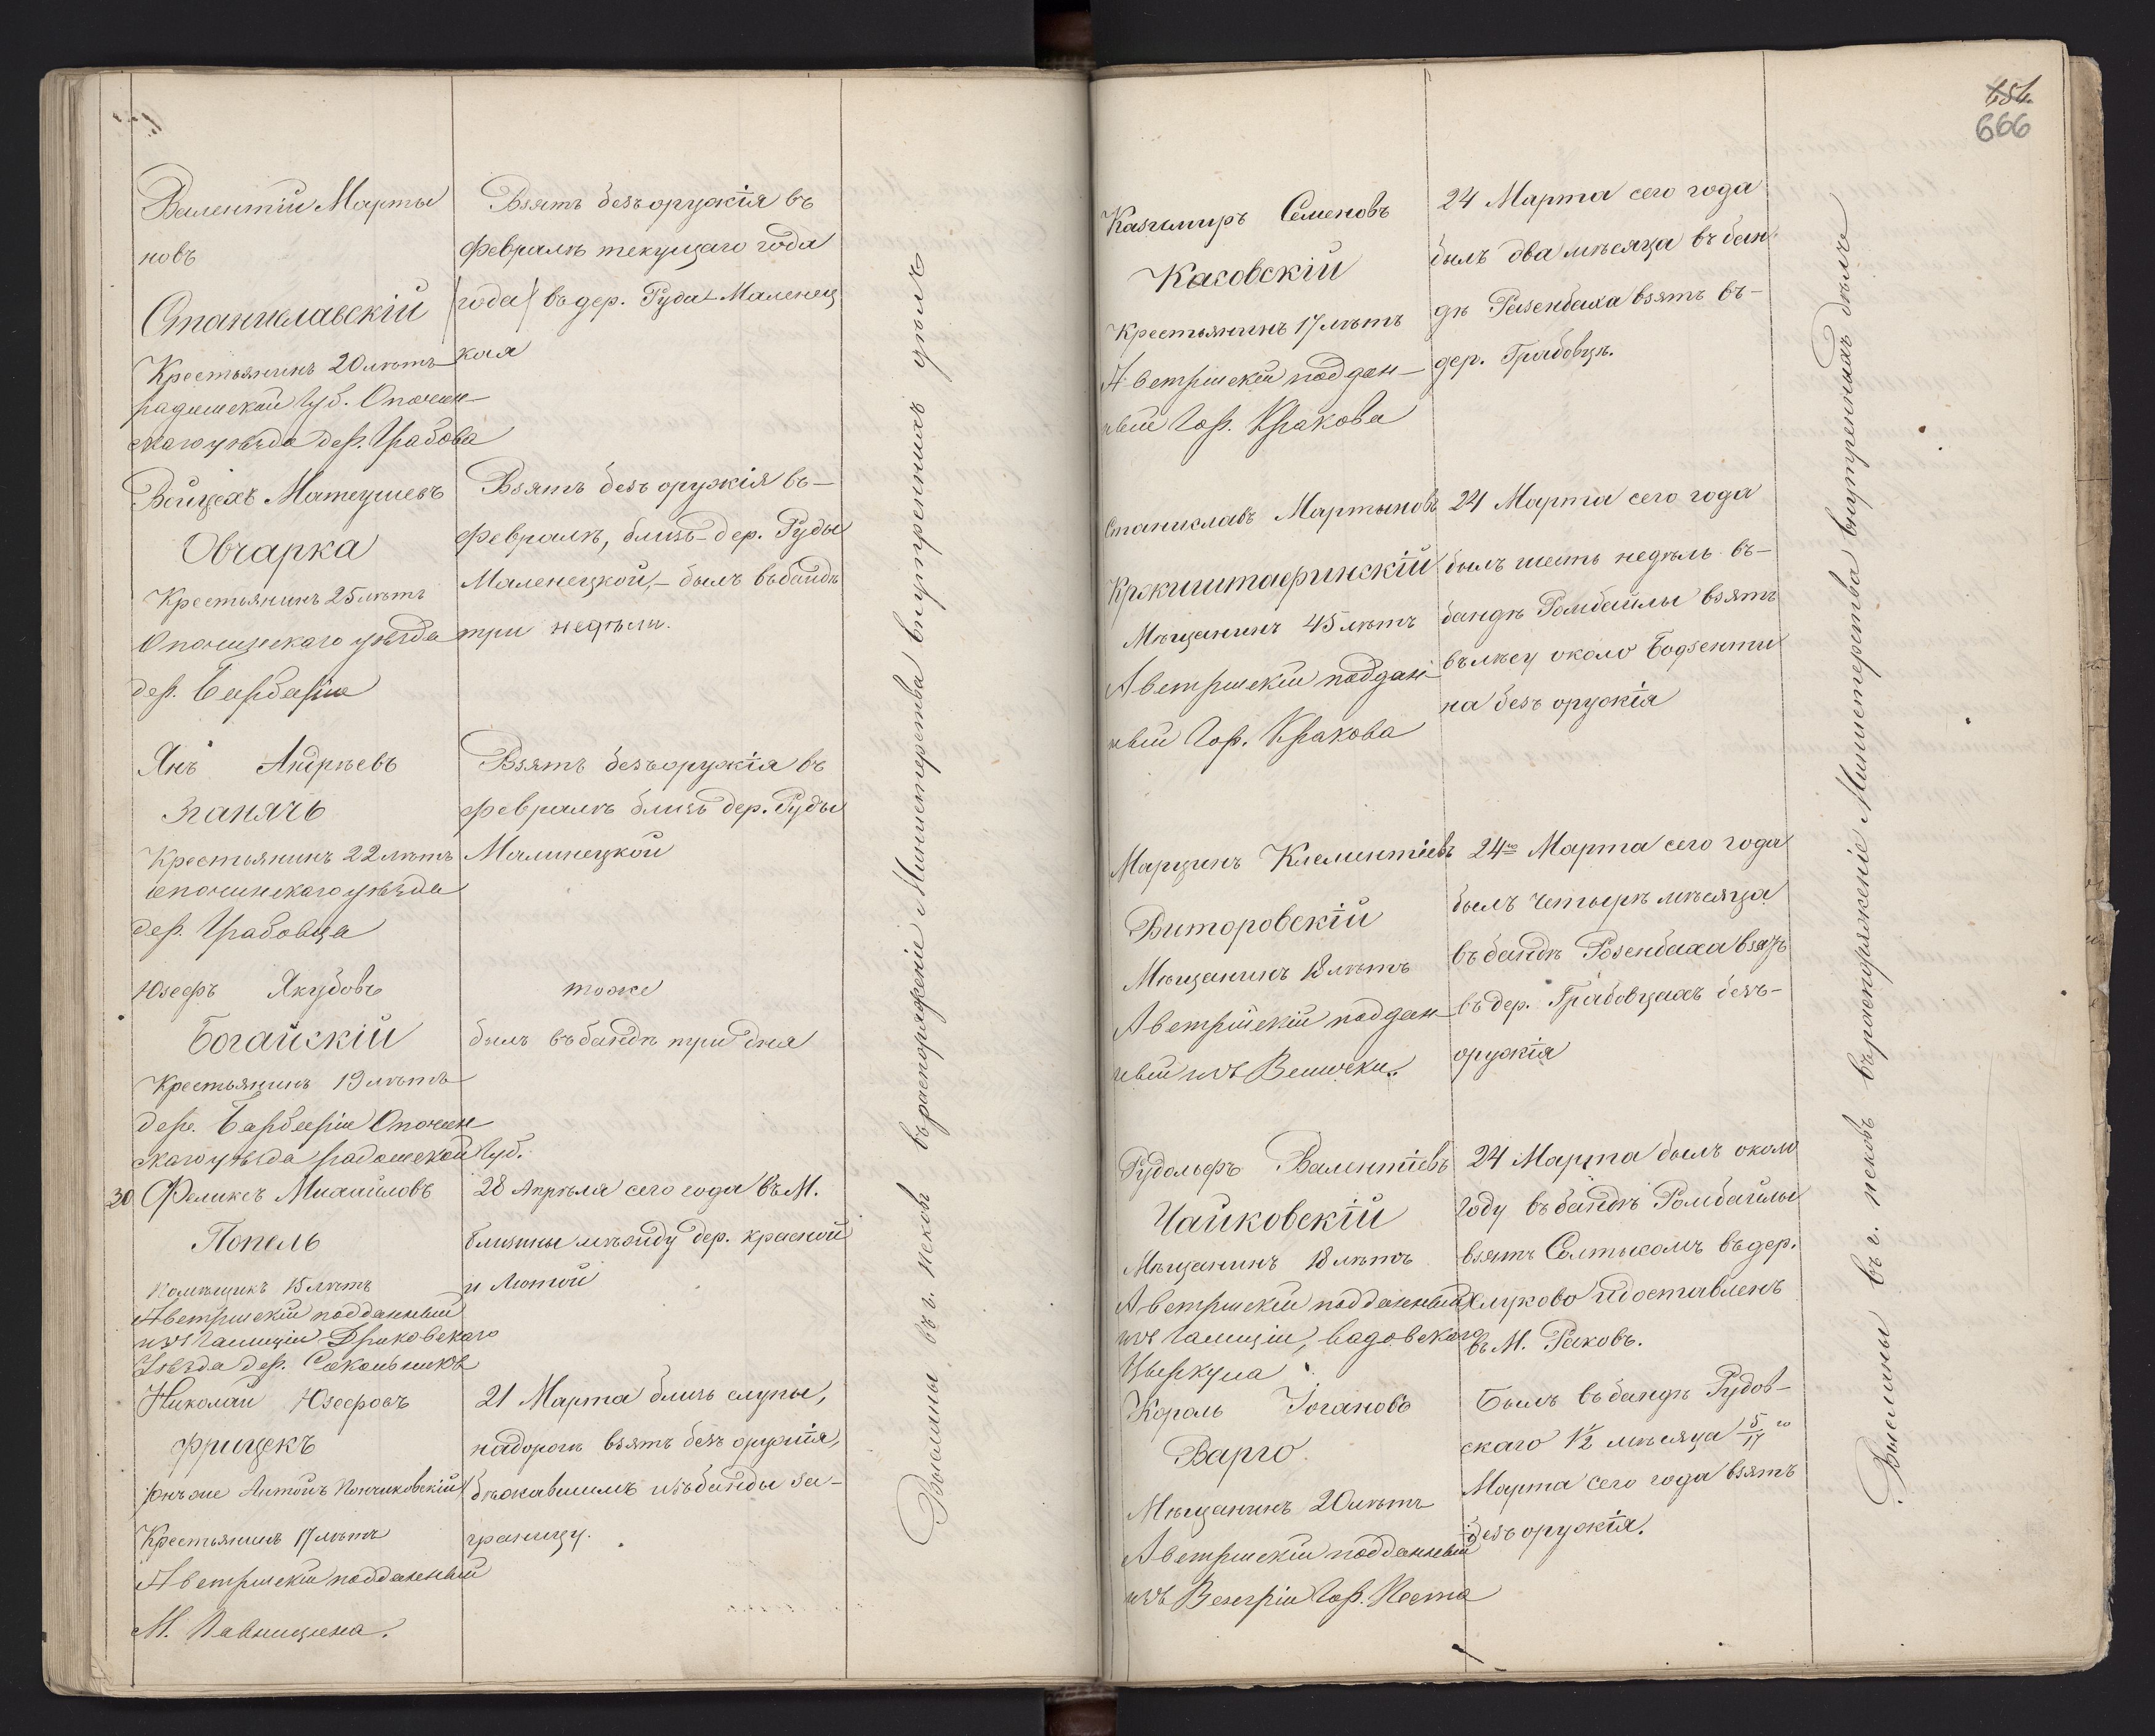 Валентій Марты
новъ
Станиславскій
Крестьянинъ 20 лѣтъ
радомской губ. Опочин-
скаго уѣзда дер. Грабова
Взятъ безъ оружія въ
февралѣ текущаго года
/года/ въ дер. Руда-Маленец
кая
Войцехъ Матеушевъ
Овчарка
Крестьянинъ 25 лѣтъ
Опочинскаго уѣзда
дер. Барбаріи
Взятъ безъ оружія въ-
февралѣ, близь дер. Руды
Маленецкой, - былъ въ бандѣ
три недѣли.
Янъ Андреевъ
Зганячъ
Крестьянинъ 22 лѣтъ
опочинскаго уѣзда
дер. Грабовца
Взятъ безъ оружія въ
февралѣ близь дер. Руды
Малинецкой
Юзефъ Якубовъ
Богайскій
Крестьянинъ 19 лѣтъ
дер. Барбаріи Опочин
скаго уѣзда радомской губ.
тоже
былъ въ бандѣ три дня
30 Феликсъ Михайловъ
Попель
Помѣщикъ 15 лѣтъ
Австрійскій подданный
изъ Галиціи Краковскаго
Уѣзда дер. Сокольники
28 Апрѣля сего года въ М.
близины между дер. красной
и Лютой
Николай Юзефовъ
Фрицекъ
Крестьянинъ 17 лѣтъ
Австрійскій подданный
21 Марта близь слупы,
на дорогѣ взятъ безъ оружія,
бѣжавшимъ изъ банды за-
границу.
Высланы въ г. псковъ въ распоряженіе Министерства внутреннихъ дѣлъ
654.
666
Казимиръ Семеновъ
Касовскій
Крестьянинъ 17 лѣтъ
Австрійскій поддан-
ный гор. Кракова
24 Марта сего года
былъ два мѣсяца въ бан
дѣ Розенбаха взятъ въ-
дер. Грабовцѣ.
Станиславъ Мартыновъ
Кржкиштафинскій
Мѣщанинъ 45 лѣтъ
Австрійскій поддан
ный гор. Кракова
24 Марта сего года
былъ шесть недѣль въ-
бандѣ Ромбайлы взятъ
въ лѣсу около Бодзенти
на безъ оружія
Марцинъ Клементіевъ
Виторовскій
Мѣщанинъ 18 лѣтъ
Австрійскій поддан
ный изъ Велички.
24го Марта сего года
былъ четырѣ мѣсяца
въ бандѣ Розенбаха взятъ
въ дер. Грабовцахъ безъ-
оружія
Рудольфъ Валентіевъ
Чайковскій
Мѣщанинъ 18 лѣтъ
Австрійскій подданный
изъ Галиціи, вадовскаго
Цыркула
24 Марта былъ около
году въ бандѣ Ромбайлы
взятъ Солтысомъ въ дер.
Хелуково и доставленъ
въ М. Раковъ.
Король Іогановъ
Варго.
Мѣщанинъ 20 лѣтъ
Австрійскій подданный
изъ Венгріи гор. Песта
Былъ въ бандѣ Рудов-
скаго 1 1/2 мѣсяца 5/17 го
Марта сего года взятъ
безъ оружія.
Высланы въ г. псковъ въ распоряженіе Министерства внутреннихъ дѣлъ